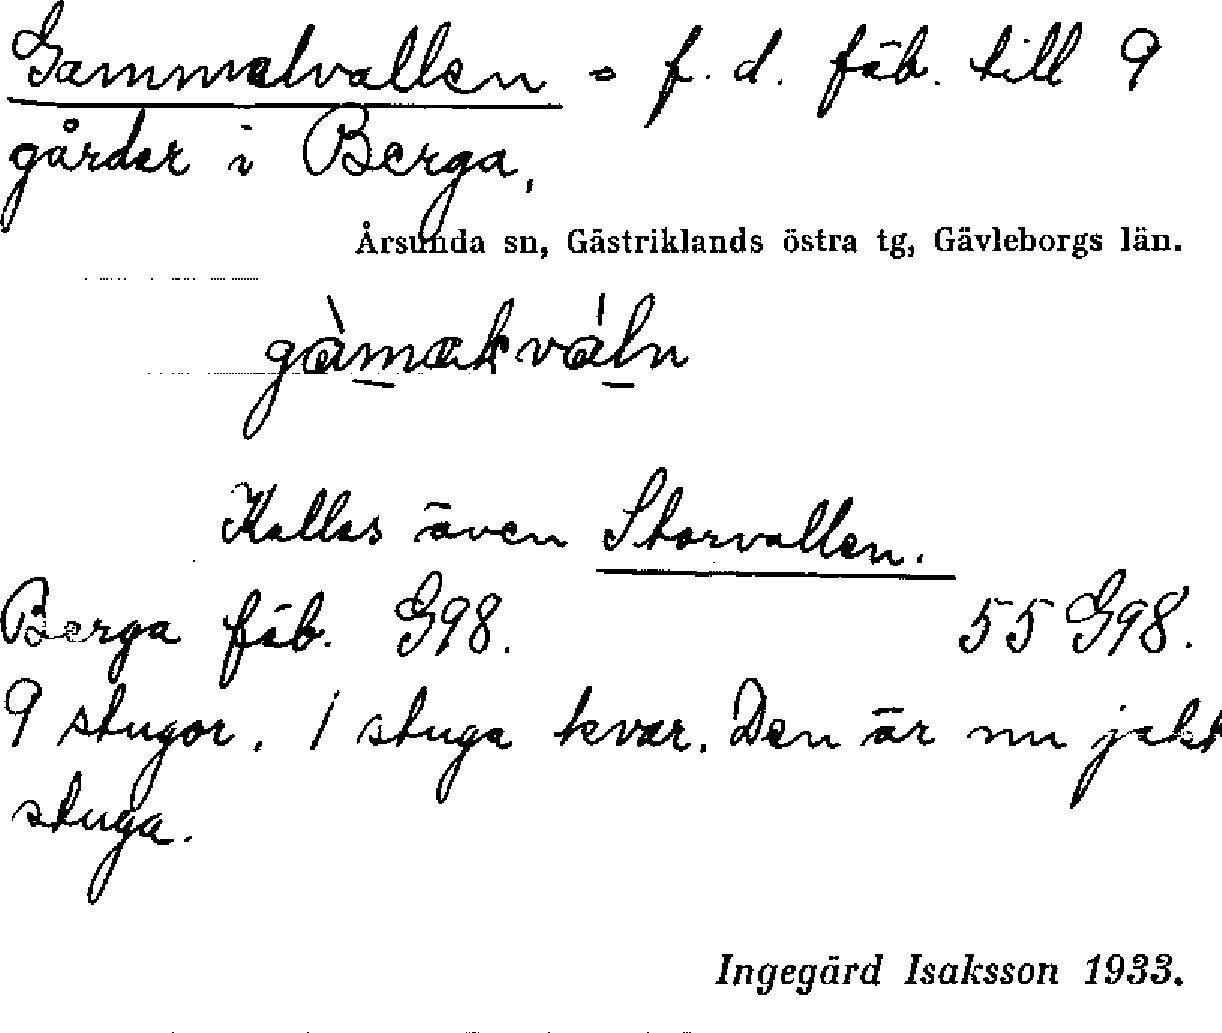 Gammalvallen = f. d. fäb. till 9
gårdar i Berga,
Årsunda sn, Gästriklands östra tg, Gävleborgs län.
Kallas även Storvallen.
Berga fäb. G98. 55 G98.
9 stugor. 1 stuga kvar. Den är nu jakt
stuga.
Ingegärd Isaksson 1933.